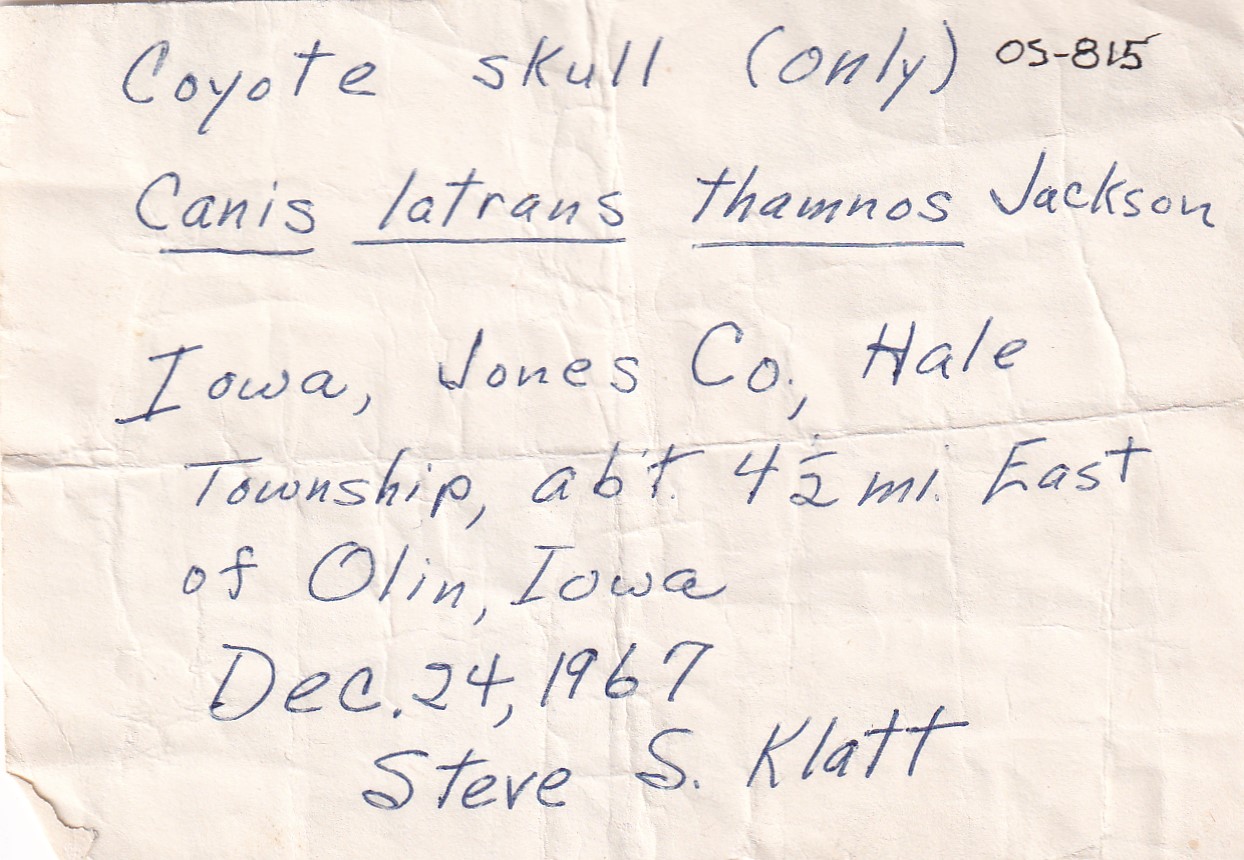 Coyote skull (only) OS-815
Canis latrans thamnos Jackson
Iowa, Jones Co., Hale
Township, ab't. 4 1/2 mi. East
of Olin, Iowa
Dec. 24, 1967
Steve S. Klatt